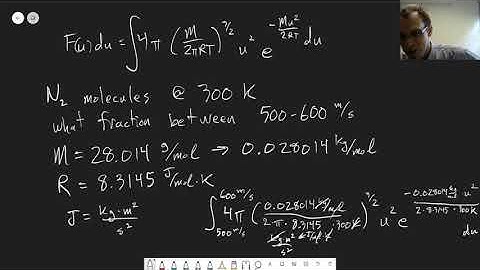 F(u)du = ∫4π (M/2πRT)^3/2 u² e^-Mu²/2RT du
N₂ molecules @ 300 K
what fraction between 500-600 m/s
M = 28.014 g/mol → 0.028014 kg/mol
R = 8.3145 J/mol·K
J = kg·m²/s²
∫ 500 m/s 600 m/s 4π (0.028014 kg/mol / 2·π·8.3145 · 300K)^3/2 u² e^-0.028014 kg/mol u² / 2·8.3145·300K du